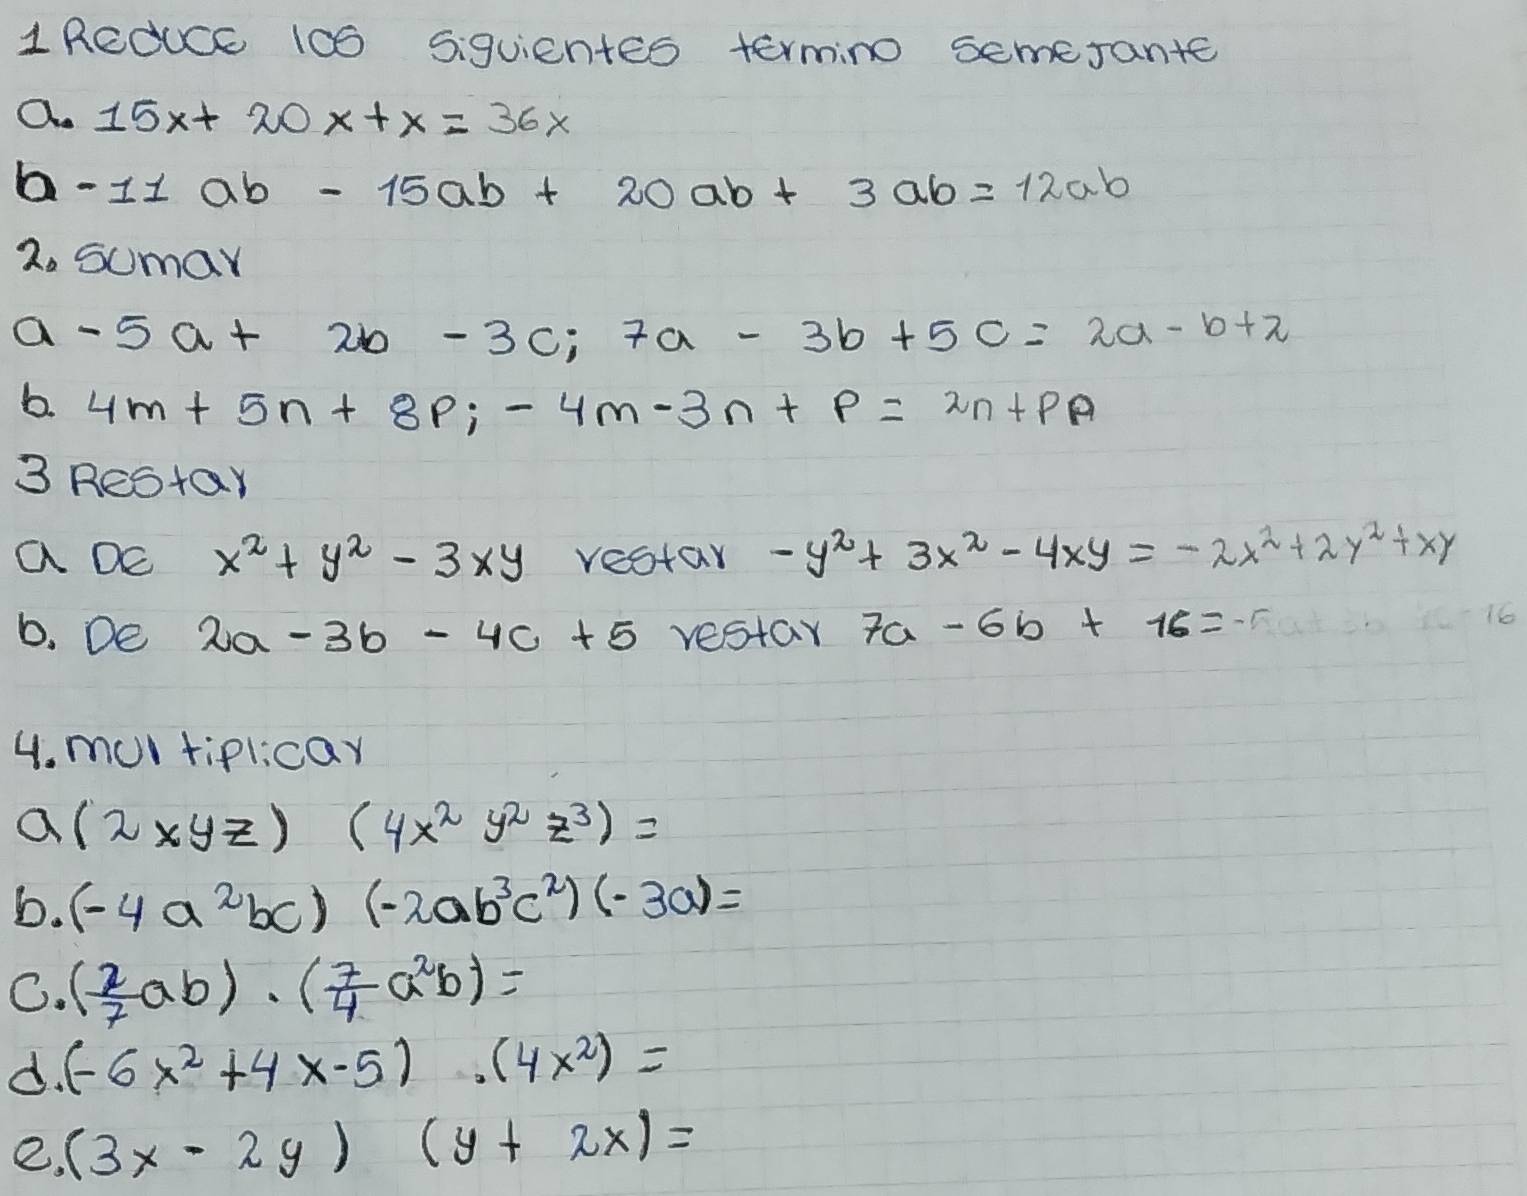 1 Reduce los siguientes termino semejante
a. 15x + 20x + x = 36x
b - 11 ab - 15ab + 20 ab + 3 ab = 12ab
2. Sumar
a - 5a + 2b - 3c; 7a - 3b + 5c = 2a - b + 2
b. 4m + 5n + 8p; - 4m - 3n + p = 2n + p
3 Restar
a De x² + y² - 3xy restar -y² + 3x² - 4xy = -2x² + 2y² + xy
b. De 2a - 3b - 4c + 5 restar 7a - 6b + 16 = -5a + 16
4. multiplicar
a (2xyz) (4x² y² z³) =
b. (-4a²bc) (-2ab³c²) (-3a) =
c. (2/7 ab) . (7/4 a²b) =
d. (-6x² + 4x - 5) . (4x²) =
e. (3x - 2y) (y + 2x) =